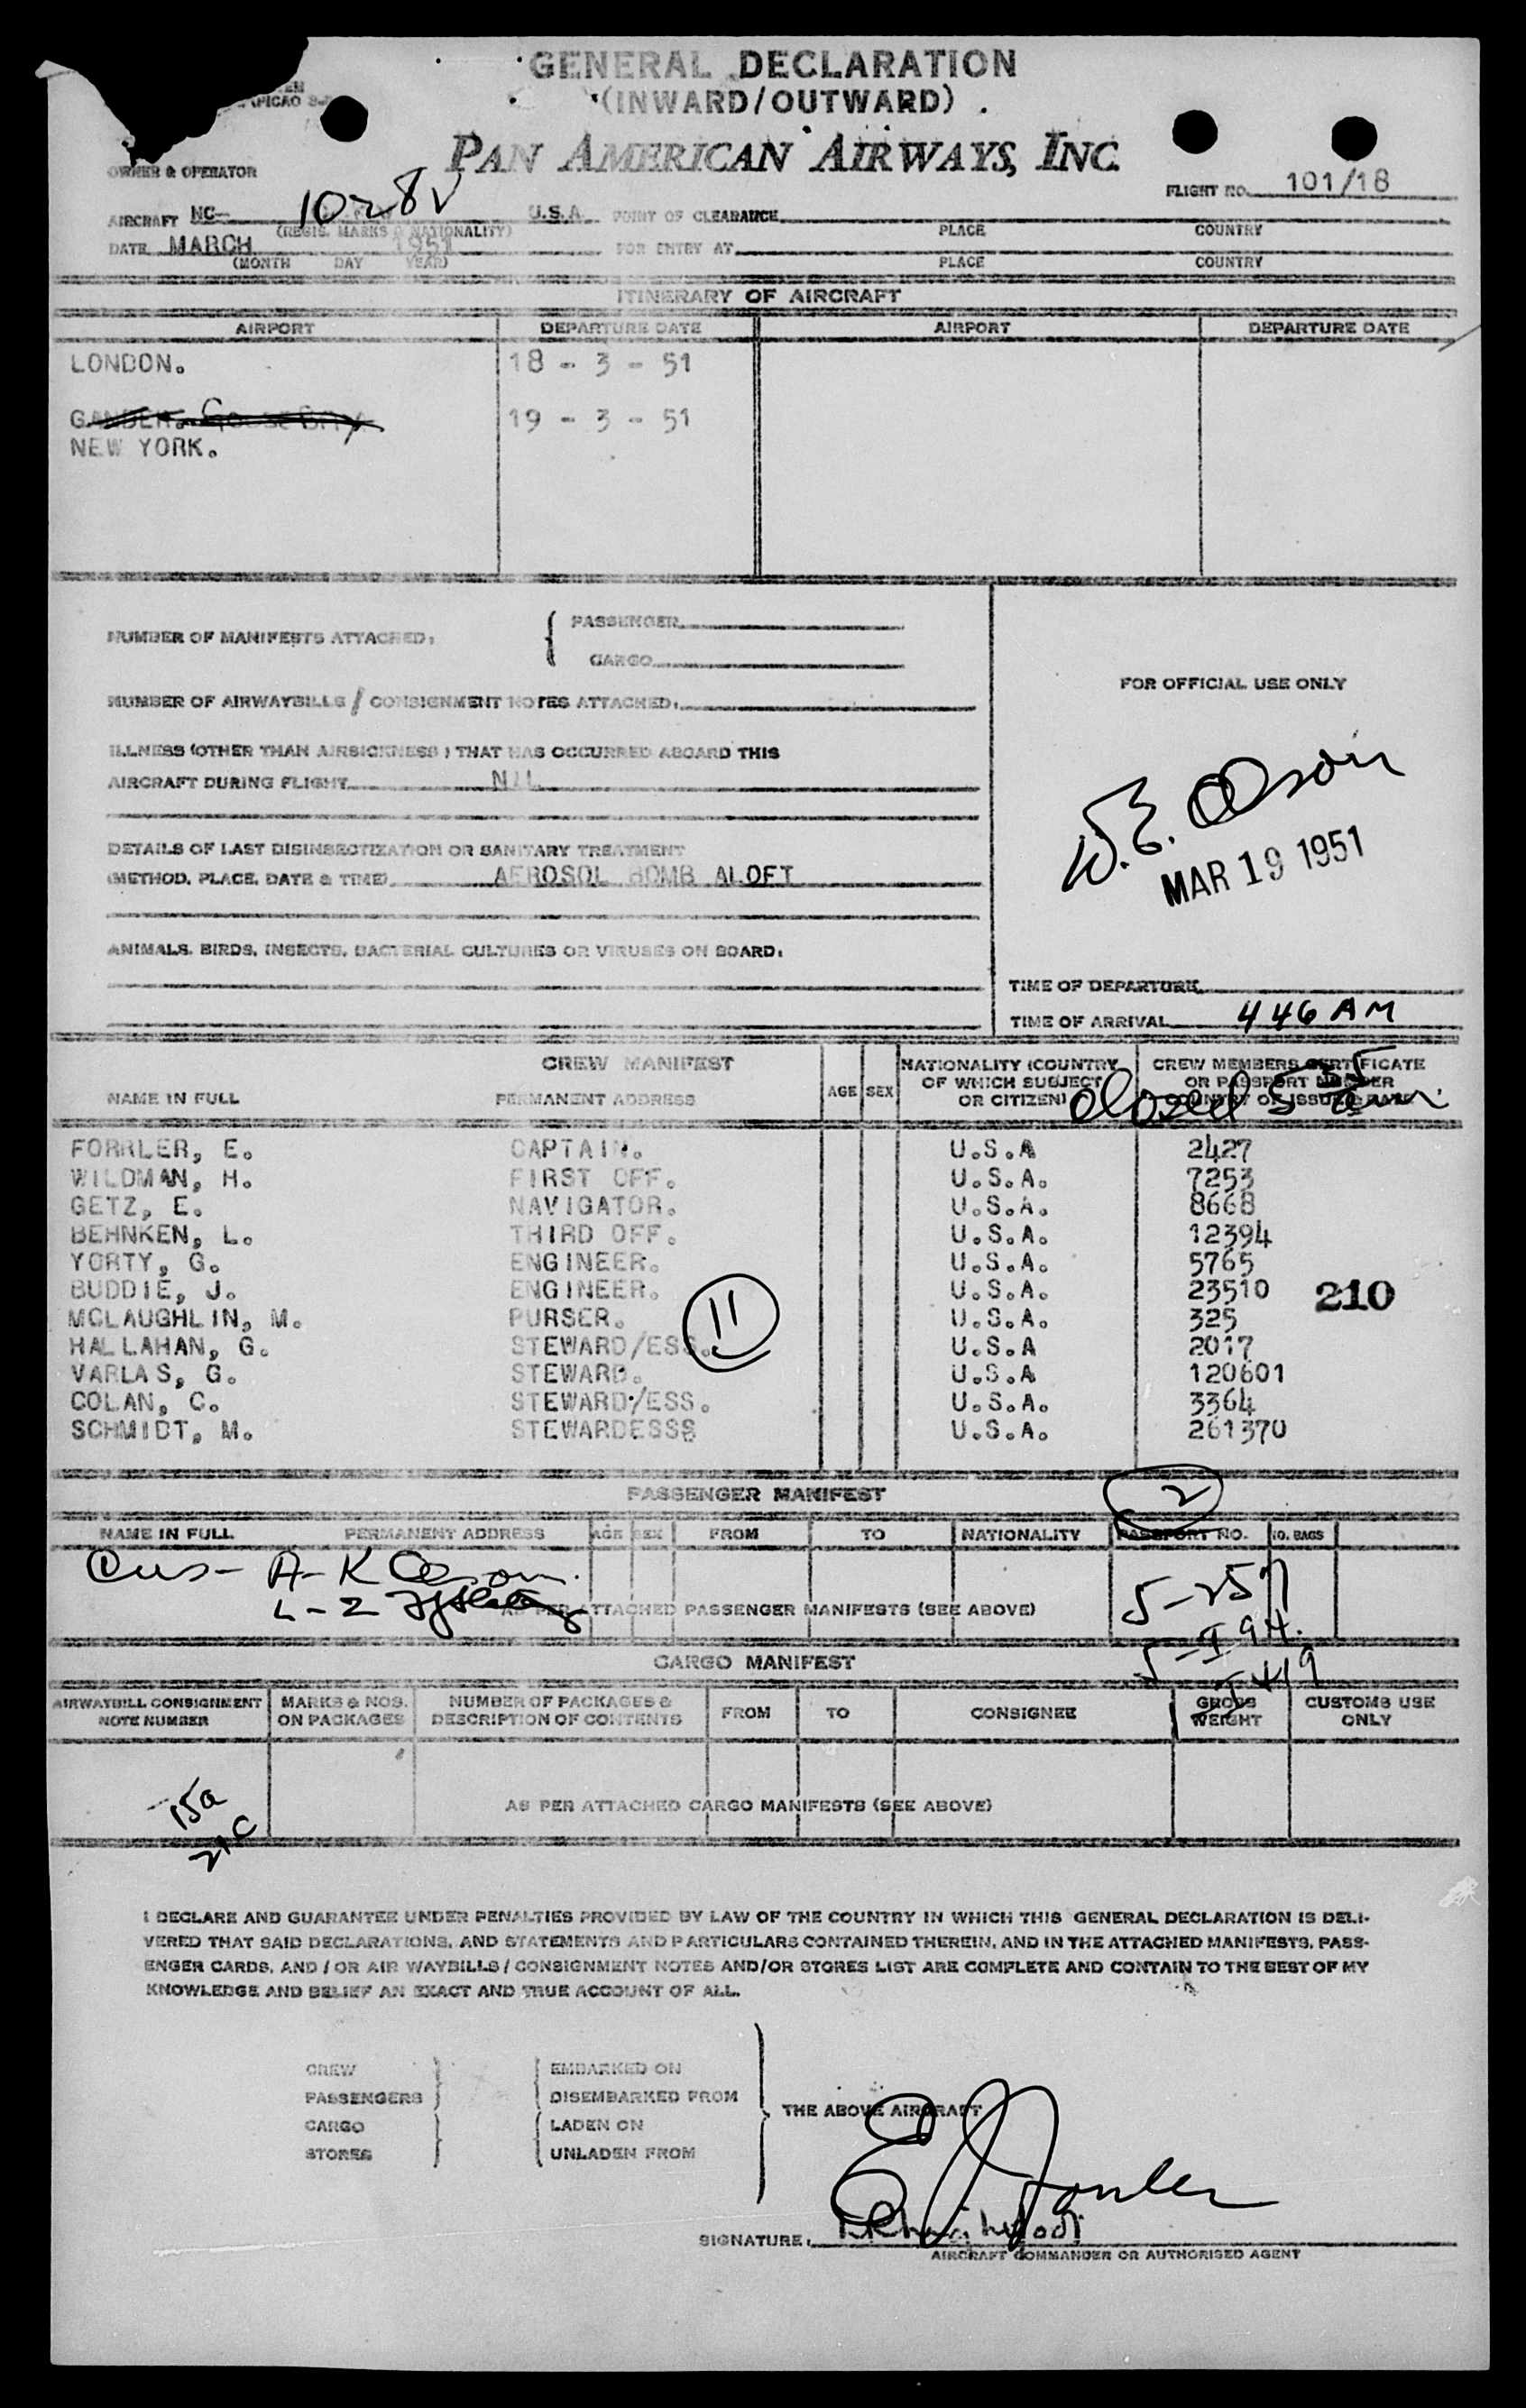 GENERAL DECLARATION
(INWARD/OUTWARD)
OWNER & OPERATOR PAN AMERICAN AIRWAYS, INC.
FLIGHT NO. 101/18
AIRCRAFT NC- 1028V U.S.A. POINT OF CLEARANCE
(REGIS. MARKS & NATIONALITY) PLACE COUNTRY
DATE MARCH 1951 FOR ENTRY AT
(MONTH DAY YEAR) PLACE COUNTRY
ITINERARY OF AIRCRAFT
AIRPORT DEPARTURE DATE AIRPORT DEPARTURE DATE
LONDON. 18 - 3 - 51
GANDER. Goose Bay 19 - 3 - 51
NEW YORK.
NUMBER OF MANIFESTS ATTACHED: PASSENGER
CARGO
NUMBER OF AIRWAYBILLS / CONSIGNMENT NOTES ATTACHED:
ILLNESS (OTHER THAN AIRSICKNESS) THAT HAS OCCURRED ABOARD THIS
AIRCRAFT DURING FLIGHT NIL
DETAILS OF LAST DISINSECTIZATION OR SANITARY TREATMENT
(METHOD, PLACE, DATE & TIME) AEROSOL BOMB ALOFT
ANIMALS, BIRDS, INSECTS, BACTERIAL CULTURES OR VIRUSES ON BOARD:
FOR OFFICIAL USE ONLY
W.E. Olson
MAR 19 1951
TIME OF DEPARTURE
TIME OF ARRIVAL 446 AM
closed 535 am.
CREW MANIFEST
NAME IN FULL PERMANENT ADDRESS AGE SEX NATIONALITY (COUNTRY OF WHICH SUBJECT OR CITIZEN) CREW MEMBERS CERTIFICATE OR PASSPORT NUMBER COUNTRY OF ISSUE & DATE
FORRLER, E. CAPTAIN. U.S.A 2427
WILDMAN, H. FIRST OFF. U.S.A. 7253
GETZ, E. NAVIGATOR. U.S.A. 8668
BEHNKEN, L. THIRD OFF. U.S.A. 12394
YORTY, G. ENGINEER. U.S.A. 5765
BUDDIE, J. ENGINEER. U.S.A. 23510
210
MCLAUGHLIN, M. PURSER. 11 U.S.A. 325
HALLAHAN, G. STEWARD/ESS. U.S.A 2017
VARLAS, G. STEWARD. U.S.A 120601
COLAN, C. STEWARD/ESS. U.S.A. 3364
SCHMIDT, M. STEWARDESSS U.S.A. 261370
PASSENGER MANIFEST
2
NAME IN FULL PERMANENT ADDRESS AGE SEX FROM TO NATIONALITY PASSPORT NO. NO. BAGS
Cus- A-K
L-2
AS PER ATTACHED PASSENGER MANIFESTS (SEE ABOVE)
CARGO MANIFEST
AIRWAYBILL CONSIGNMENT NOTE NUMBER MARKS & NOS. ON PACKAGES NUMBER OF PACKAGES & DESCRIPTION OF CONTENTS FROM TO CONSIGNEE GROSS WEIGHT CUSTOMS USE ONLY
15a
21c
AS PER ATTACHED CARGO MANIFESTS (SEE ABOVE)
I DECLARE AND GUARANTEE UNDER PENALTIES PROVIDED BY LAW OF THE COUNTRY IN WHICH THIS GENERAL DECLARATION IS DELI-
VERED THAT SAID DECLARATIONS, AND STATEMENTS AND PARTICULARS CONTAINED THEREIN, AND IN THE ATTACHED MANIFESTS, PASS-
ENGER CARDS, AND / OR AIR WAYBILLS / CONSIGNMENT NOTES AND/OR STORES LIST ARE COMPLETE AND CONTAIN TO THE BEST OF MY
KNOWLEDGE AND BELIEF AN EXACT AND TRUE ACCOUNT OF ALL.
CREW EMBARKED ON
PASSENGERS DISEMBARKED FROM
THE ABOVE AIRCRAFT
CARGO LADEN ON
STORES UNLADEN FROM
SIGNATURE:
AIRCRAFT COMMANDER OR AUTHORISED AGENT